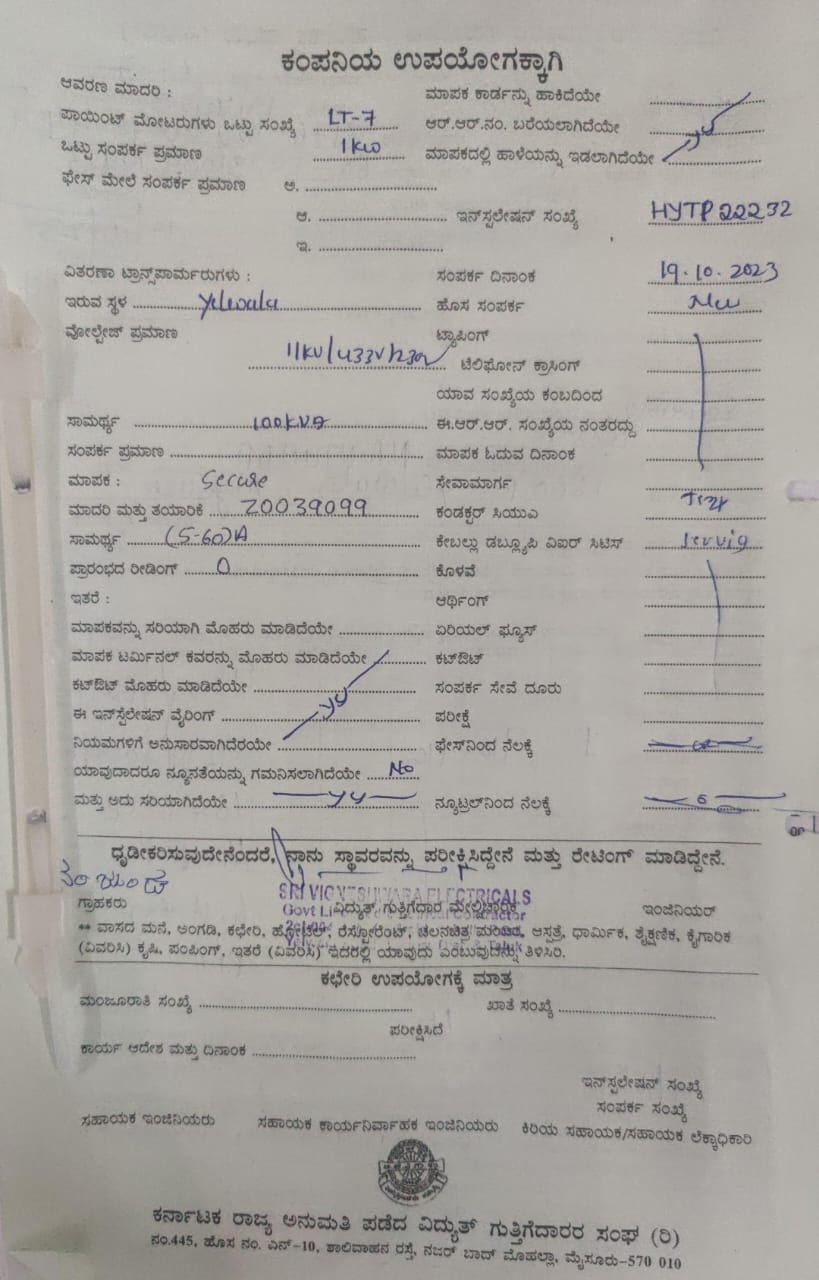 ಕಂಪನಿಯ ಉಪಯೋಗಕ್ಕಾಗಿ
ಆವರಣ ಮಾದರಿ : ಮಾಪಕ ಕಾರ್ಡನ್ನು ಹಾಕಿದೆಯೇ
ಪಾಯಿಂಟ್ ಮೋಟರುಗಳು ಒಟ್ಟು ಸಂಖ್ಯೆ LT-7 ಆರ್.ಆರ್.ನಂ. ಬರೆಯಲಾಗಿದೆಯೇ
ಒಟ್ಟು ಸಂಪರ್ಕ ಪ್ರಮಾಣ 1kw ಮಾಪಕದಲ್ಲಿ ಹಾಳೆಯನ್ನು ಇಡಲಾಗಿದೆಯೇ
ಫೇಸ್ ಮೇಲೆ ಸಂಪರ್ಕ ಪ್ರಮಾಣ ಅ.
ಆ. ಇನ್‌ಸ್ಟಲೇಷನ್ ಸಂಖ್ಯೆ HYTP 22232
ಇ.
ವಿತರಣಾ ಟ್ರಾನ್ಸ್‌ಪಾರ್ಮರುಗಳು : ಸಂಪರ್ಕ ದಿನಾಂಕ 19.10.2023
ಇರುವ ಸ್ಥಳ Yelwala ಹೊಸ ಸಂಪರ್ಕ
ವೋಲ್ಟೇಜ್ ಪ್ರಮಾಣ ಟ್ಯಾಪಿಂಗ್
11KV/433V/230V ಟೆಲಿಫೋನ್ ಕ್ರಾಸಿಂಗ್
ಯಾವ ಸಂಖ್ಯೆಯ ಕಂಬದಿಂದ
ಸಾಮರ್ಥ್ಯ 100KVA ಈ.ಆರ್.ಆರ್. ಸಂಖ್ಯೆಯ ನಂತರದ್ದು
ಸಂಪರ್ಕ ಪ್ರಮಾಣ ಮಾಪಕ ಓದುವ ದಿನಾಂಕ
ಮಾಪಕ : Secure ಸೇವಾಮಾರ್ಗ
ಮಾದರಿ ಮತ್ತು ತಯಾರಿಕೆ 20039099 ಕಂಡಕ್ಟರ್ ಸಿಯುಎ
ಸಾಮರ್ಥ್ಯ (5-60)A ಕೇಬಲ್ಲು ಡಬ್ಲ್ಯೂಪಿ ವಿಐರ್ ಸಿಟಿಸ್
ಪ್ರಾರಂಭದ ರೀಡಿಂಗ್ 0 ಕೊಳವೆ
ಇತರೆ : ಆರ್ಥಿಂಗ್
ಮಾಪಕವನ್ನು ಸರಿಯಾಗಿ ಮೊಹರು ಮಾಡಿದೆಯೇ ಏರಿಯಲ್ ಫ್ಯೂಸ್
ಮಾಪಕ ಟರ್ಮಿನಲ್ ಕವರನ್ನು ಮೊಹರು ಮಾಡಿದೆಯೇ ಕಟ್‌ಔಟ್
ಕಟ್‌ಔಟ್ ಮೊಹರು ಮಾಡಿದೆಯೇ ಸಂಪರ್ಕ ಸೇವೆ ದೂರು
ಈ ಇನ್‌ಸ್ಟೆಲೇಷನ್ ವೈರಿಂಗ್ ಪರೀಕ್ಷೆ
ನಿಯಮಗಳಿಗೆ ಅನುಸಾರವಾಗಿದೆರಯೇ ಫೇಸ್‌ನಿಂದ ನೆಲಕ್ಕೆ
ಯಾವುದಾದರೂ ನ್ಯೂನತೆಯನ್ನು ಗಮನಿಸಲಾಗಿದೆಯೇ No
ಮತ್ತು ಅದು ಸರಿಯಾಗಿದೆಯೇ ನ್ಯೂಟ್ರಲ್‌ನಿಂದ ನೆಲಕ್ಕೆ
ಧೃಡೀಕರಿಸುವುದೇನೆಂದರೆ, ನಾನು ಸ್ಥಾವರವನ್ನು ಪರೀಕ್ಷಿಸಿದ್ದೇನೆ ಮತ್ತು ರೇಟಿಂಗ್ ಮಾಡಿದ್ದೇನೆ.
SRI VIGNESHWARA ELECTRICALS
ಗ್ರಾಹಕರು ವಿದ್ಯುತ್ ಗುತ್ತಿಗೆದಾರ ಮೇಲ್ವಿಚಾರಕ ಇಂಜಿನಿಯರ್
** ವಾಸದ ಮನೆ, ಅಂಗಡಿ, ಕಛೇರಿ, ಹೋಟೆಲ್, ರೆಸ್ಟೋರೆಂಟ್, ಚಲನಚಿತ್ರ ಮಂದಿರ, ಆಸ್ಪತ್ರೆ, ಧಾರ್ಮಿಕ, ಶೈಕ್ಷಣಿಕ, ಕೈಗಾರಿಕ
(ವಿವರಿಸಿ) ಕೃಷಿ, ಪಂಪಿಂಗ್, ಇತರೆ (ವಿವರಿಸಿ) ಇದರಲ್ಲಿ ಯಾವುದು ಎಂಬುವುದನ್ನು ತಿಳಿಸಿರಿ.
ಕಛೇರಿ ಉಪಯೋಗಕ್ಕೆ ಮಾತ್ರ
ಮಂಜೂರಾತಿ ಸಂಖ್ಯೆ ಖಾತೆ ಸಂಖ್ಯೆ
ಪರೀಕ್ಷಿಸಿದೆ
ಕಾರ್ಯ ಆದೇಶ ಮತ್ತು ದಿನಾಂಕ
ಇನ್‌ಸ್ಟಲೇಷನ್ ಸಂಖ್ಯೆ
ಸಂಪರ್ಕ ಸಂಖ್ಯೆ
ಸಹಾಯಕ ಇಂಜಿನಿಯರು ಸಹಾಯಕ ಕಾರ್ಯನಿರ್ವಾಹಕ ಇಂಜಿನಿಯರು ಕಿರಿಯ ಸಹಾಯಕ/ಸಹಾಯಕ ಲೆಕ್ಕಾಧಿಕಾರಿ
ಕರ್ನಾಟಕ ರಾಜ್ಯ ಅನುಮತಿ ಪಡೆದ ವಿದ್ಯುತ್ ಗುತ್ತಿಗೆದಾರರ ಸಂಘ (ರಿ)
ನಂ.445, ಹೊಸ ನಂ. ಎನ್-10, ಶಾಲಿವಾಹನ ರಸ್ತೆ, ನಜರ್ ಬಾದ್ ಮೊಹಲ್ಲಾ, ಮೈಸೂರು-570 010